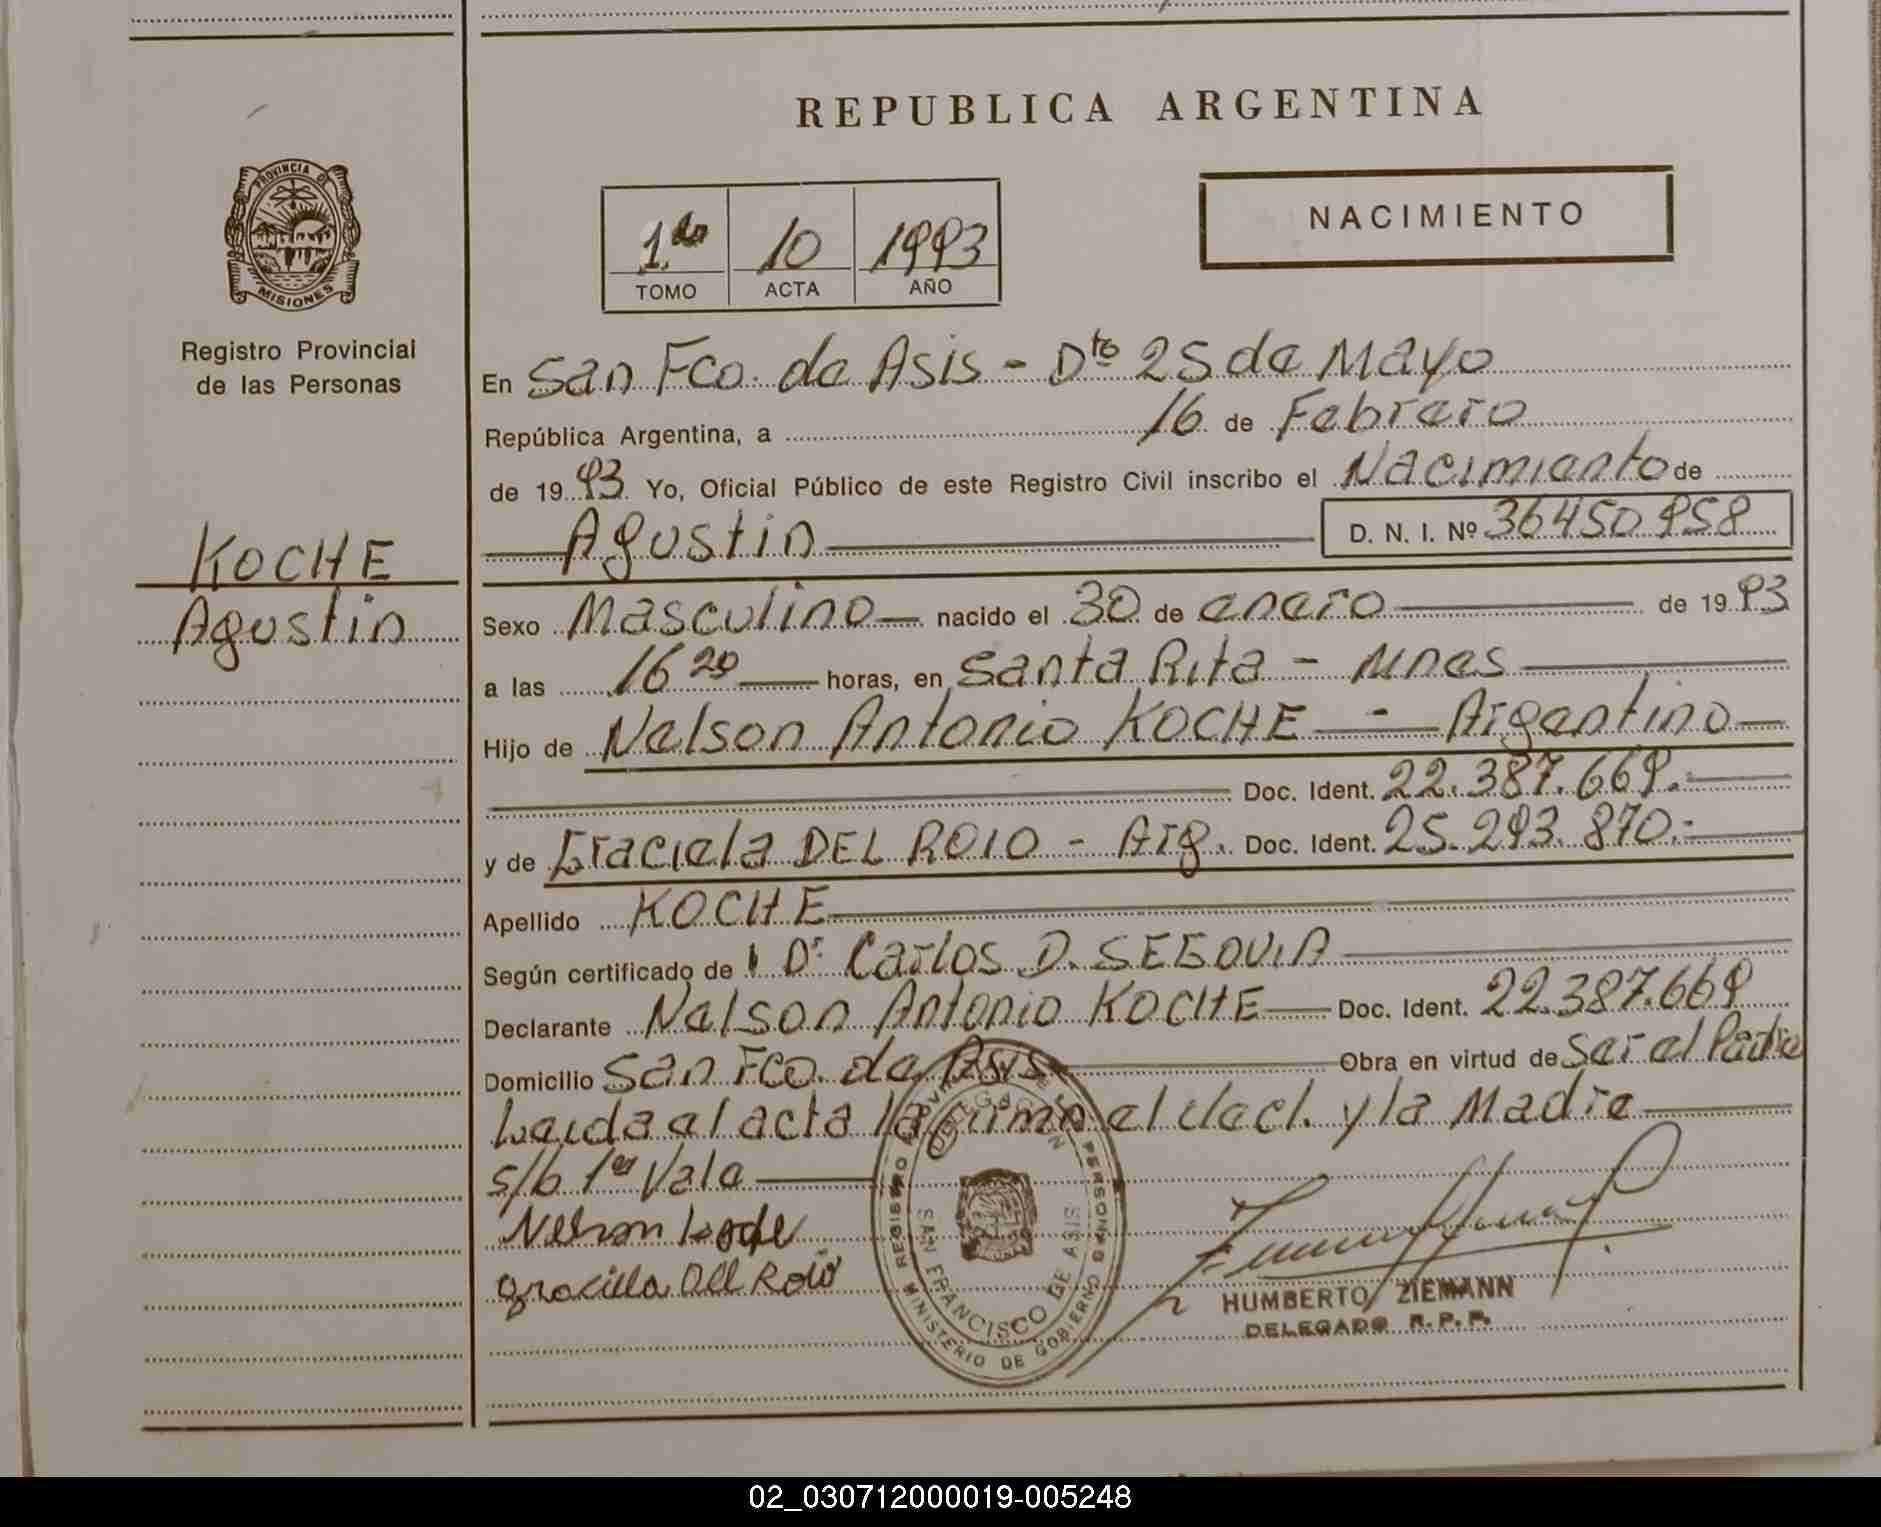 REPUBLICA ARGENTINA
PROVINCIA DE
MISIONES
Registro Provincial
de las Personas
KOCHE
Agustin
1.do 10 1993
TOMO ACTA AÑO
NACIMIENTO
En San Fco. de Asis - Dto 25 de Mayo
República Argentina, a 16 de Febrero
de 1993 Yo, Oficial Público de este Registro Civil inscribo el Nacimiento de
Agustin D. N. I. Nº 36450958
Sexo Masculino nacido el 30 de enero de 1993
a las 16 20 horas, en Santa Rita - Mnes
Hijo de Nelson Antonio KOCHE - Argentino
Doc. Ident. 22.387.669.-
y de Graciela DEL ROIO - Arg. Doc. Ident. 25.293.870.-
Apellido KOCHE
Según certificado de Dr Carlos D. SEGOVIA
Declarante Nelson Antonio KOCHE Doc. Ident. 22.387.669
Domicilio San Fco. de Asis Obra en virtud de Ser el Padre
Leida el acta la firman el decl. y la Madre
s/b 1ro Vale
Nelson
Graciela Del Roio
REGISTRO PERSONAS
DELEGACION
SAN FRANCISCO DE ASIS
MINISTERIO DE GOBIERNO
HUMBERTO ZIEMANN
DELEGADO R.P.P.
02_030712000019-005248